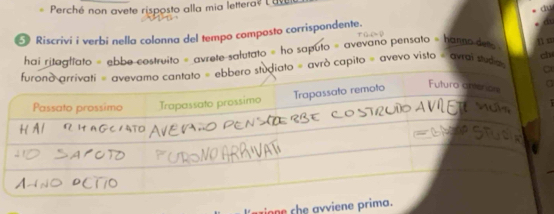 Perché non avete risposto alla mia lettera?
5 Riscrivi i verbi nella colonna del tempo composto corrispondente.
hai ritagliato • ebbe costruito • avrete salutato • ho saputo • avevano pensato • hanno detto •
furono arrivati • avevamo cantato • ebbero studiato • avrò capito • avevo visto • avrai studiato
Passato prossimo Trapassato prossimo Trapassato remoto Futuro anteriore
HAI RITAGLIATO AVEVANO PENSATO EBBE COSTRUITO AVRETE
HO SAPUTO FURONO ARRIVATI
HANNO DETTO
che avviene prima.